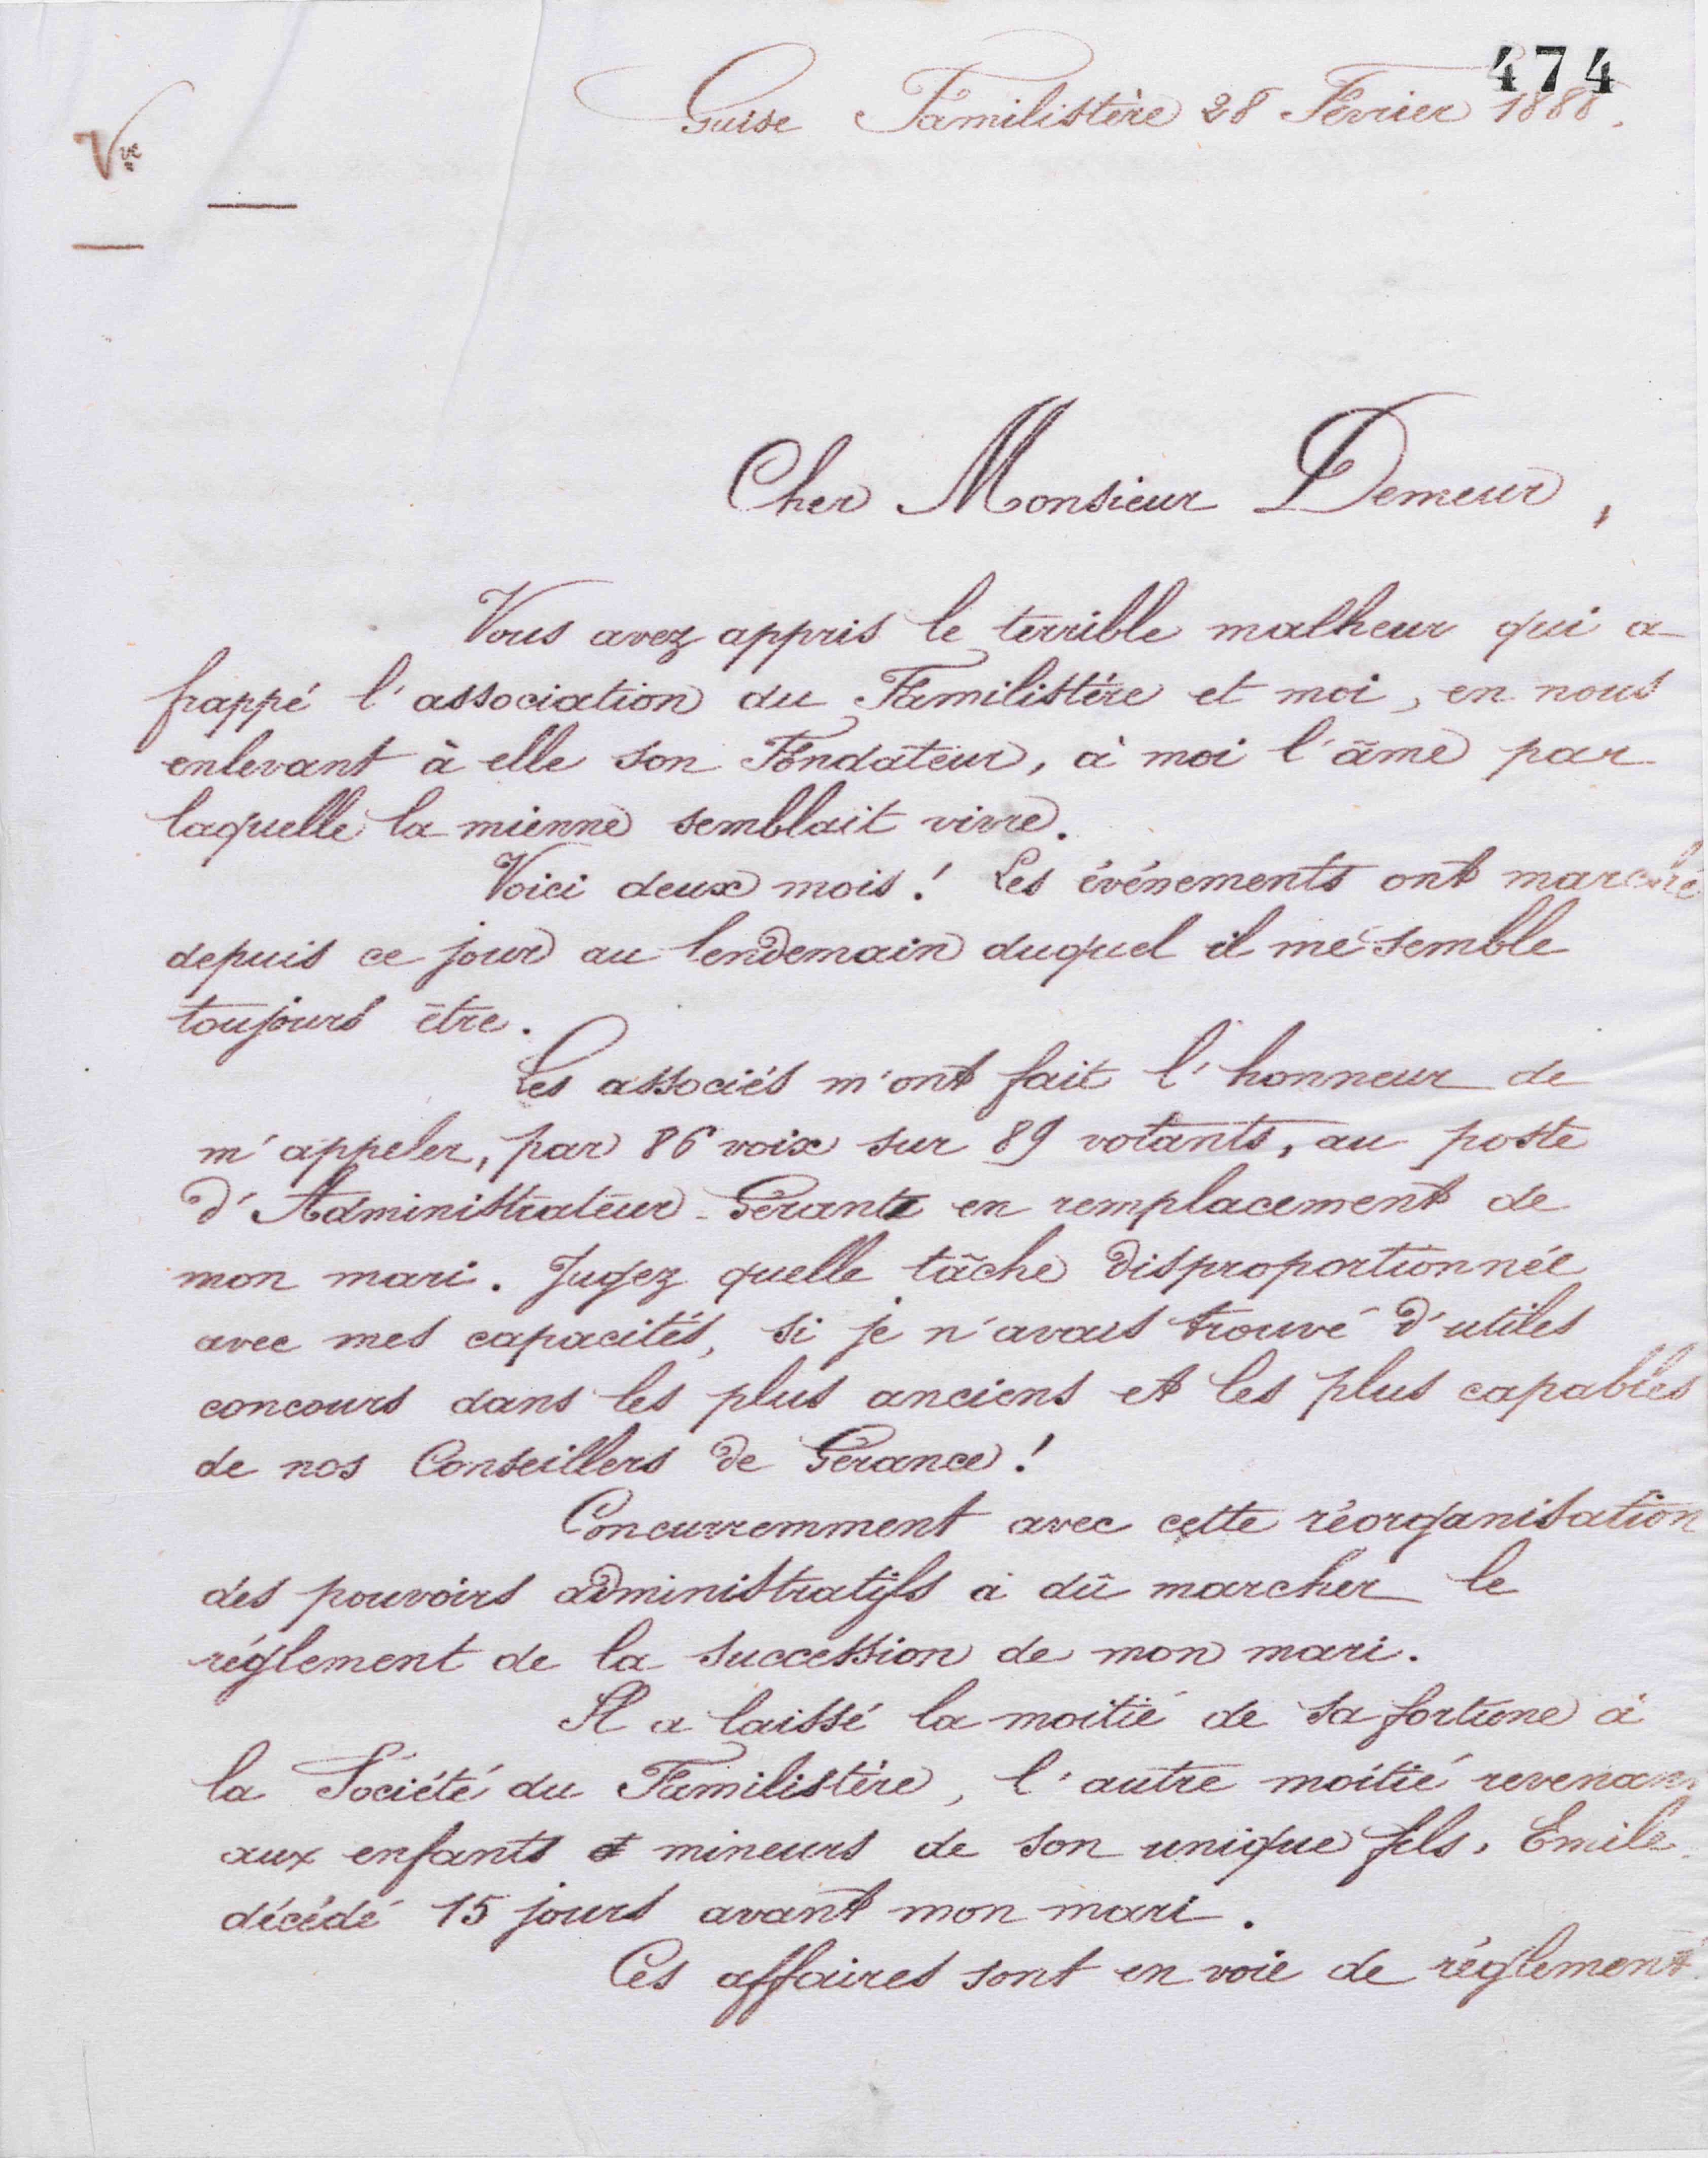 474
Guise Familistère 28 Février 1888.
Vve
Cher Monsieur Demeur,
Vous avez appris le terrible malheur qui a
frappé l'association du Familistère et moi, en nous
enlevant à elle son Fondateur, à moi l'âme par
laquelle la mienne semblait vivre.
Voici deux mois! Les événements ont marché
depuis ce jour au lendemain duquel il me semble
toujours être.
Les associés m'ont fait l'honneur de
m'appeler, par 86 voix sur 89 votants, au poste
d'Administrateur-Gérante en remplacement de
mon mari. Jugez quelle tâche disproportionnée
avec mes capacités, si je n'avais trouvé d'utiles
concours dans les plus anciens et les plus capables
de nos Conseillers de Gérance!
Concurremment avec cette réorganisation
des pouvoirs administratifs a dû marcher le
réglement de la succession de mon mari.
Il a laissé la moitié de sa fortune à
la Société du Familistère, l'autre moitié revenant
aux enfants mineurs de son unique fils, Emile
décédé 15 jours avant mon mari.
Ces affaires sont en voie de réglement